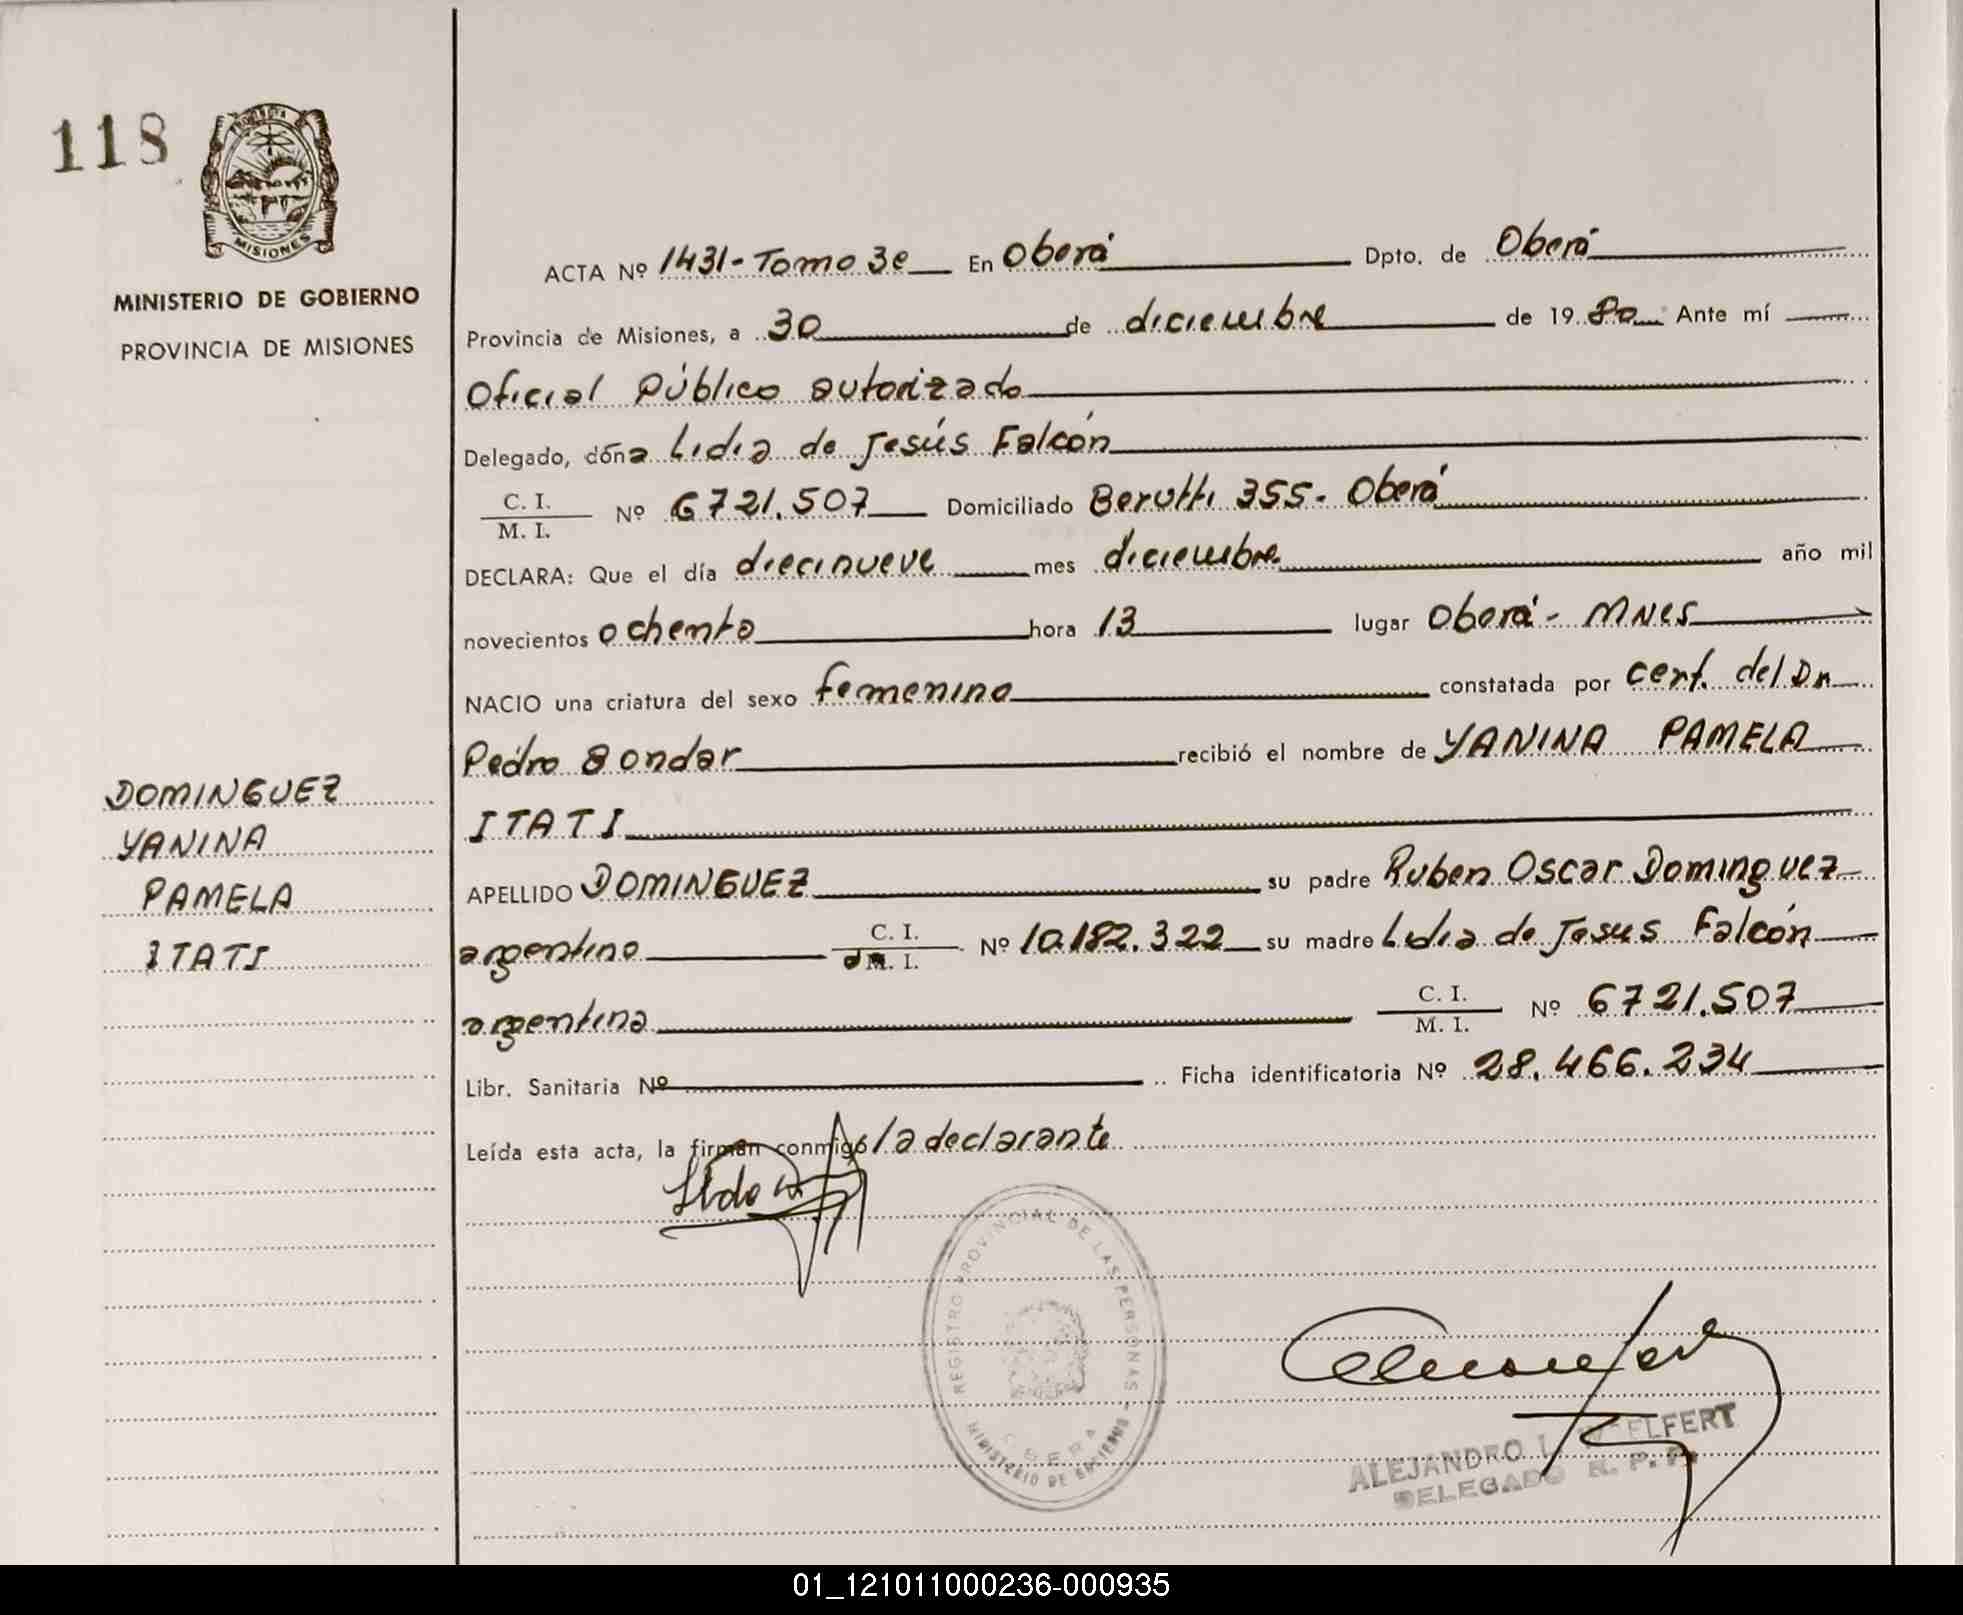 118
MISIONES
MINISTERIO DE GOBIERNO
PROVINCIA DE MISIONES
DOMINGUEZ
YANINA
PAMELA
ITATI
ACTA Nº 1431-Tomo 3e En Oberá Dpto. de Oberá
Provincia de Misiones, a 30 de diciembre de 1980 Ante mí
Oficial Público autorizado
Delegado, dóña Lidia de Jesús Falcón
C. I.
M. I. Nº 6721.507 Domiciliado Berutti 355- Oberá
DECLARA: Que el día diecinueve mes diciembre año mil
novecientos ochenta hora 13 lugar Oberá- MNES
NACIO una criatura del sexo femenino constatada por cert. del Dr
Pedro Bondar recibió el nombre de YANINA PAMELA
ITATI
APELLIDO DOMINGUEZ su padre Ruben Oscar Dominguez
argentino C. I.
M. I. Nº 10.182.322 su madre Lidia de Jesus Falcón
argentina C. I.
M. I. Nº 6721.507
Libr. Sanitaria Nº Ficha identificatoria Nº 28.466.234
Leída esta acta, la firman conmigo la declarante
REGISTRO PROVINCIAL DE LAS PERSONAS
OBERA
MINISTERIO DE GOBIERNO
ALEJANDRO L.
DELEGADO R. P. P.
01_121011000236-000935